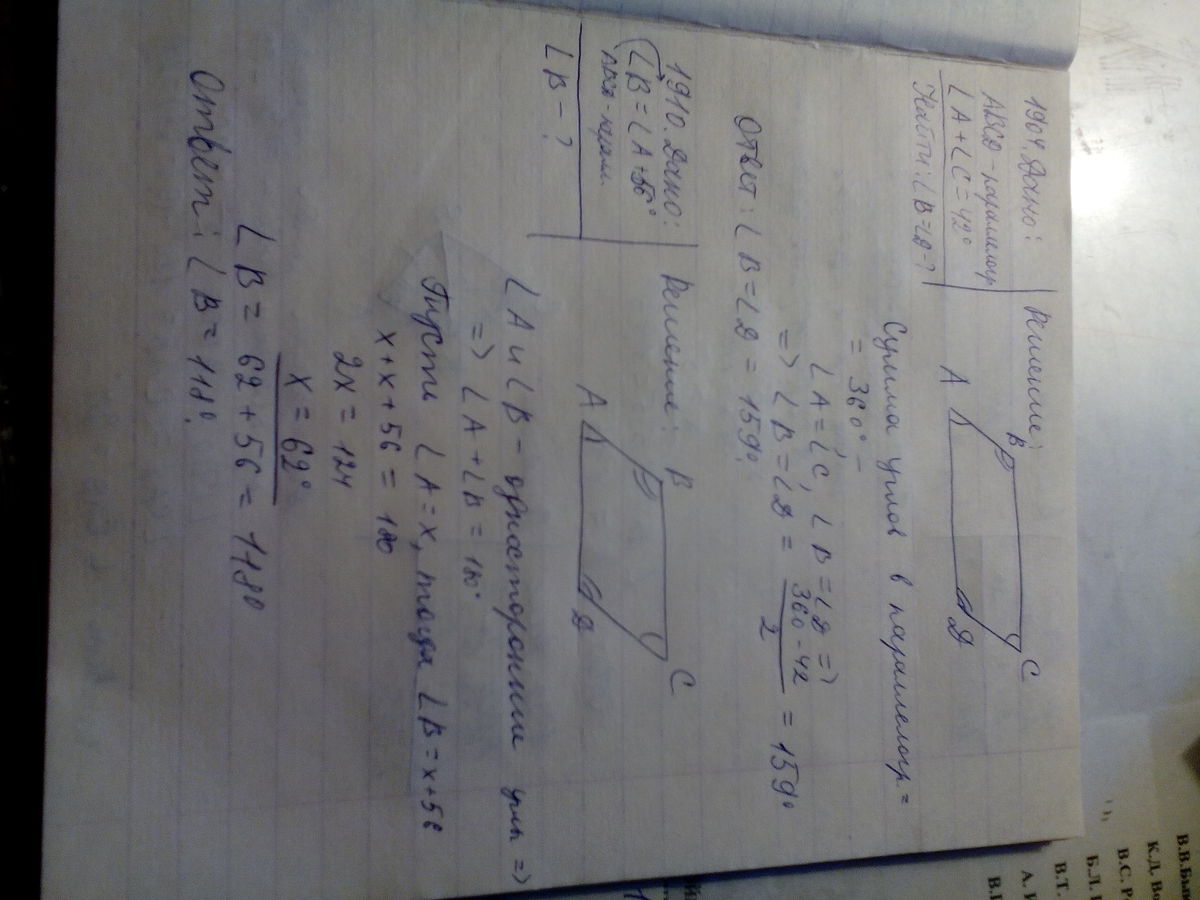 1904. Дано:
ABCD - параллелогр
∠A + ∠C = 42°
Найти: ∠B=∠D-?
Решение:
B
C
A
D
Сумма углов в параллелогр. =
= 360° -
∠A = ∠C, ∠B = ∠D =>
=> ∠B = ∠D = (360 - 42)/2 = 159°
Ответ: ∠B = ∠D = 159°.
1910. Дано:
∠B = ∠A + 56°
ABCD - парал.
∠B - ?
Решение:
B
C
A
D
∠A и ∠B - односторонние углы =>
=> ∠A + ∠B = 180°
Пусть ∠A = x, тогда ∠B = x + 56
x + x + 56 = 180
2x = 124
x = 62°
∠B = 62 + 56 = 118°
Ответ: ∠B = 118°.
В.В.Бы
К.Д. Во
В.С. Р
Б.Л.
В.Т.
А.